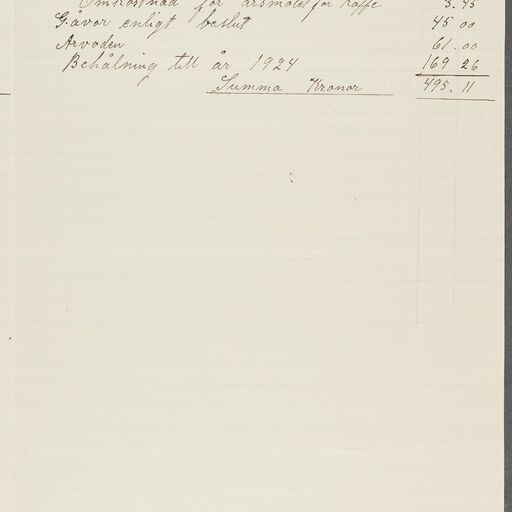 Omkostnad för årsmötet för kaffe 3.45
Gåvor enligt beslut 45 00
Arvoden 61.00
Behålning till år 1924 169 26
Summa Kronor 495.11